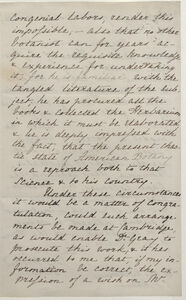 congenial labors, render this
impossible, – also that no other
botanist can for years ac-
quire the requisite knowledge
& experience for undertaking
it, for he is familiar with the
tangled literature of the sub-
ject; he has procured all the
books & collected the Herbarium
in which it must be elaborated
& he is deeply impressed with
the fact, that the present chao-
tic state of American Botany
is a reproach both to that
science & to his country.
Under these circumstances
it would be a matter of congra-
tulation, could such arrange-
ments be made at Cambridge,
as would enable Dr. Gray, to
prosecute this work, & it has
occurred to me that, if my in-
formation be correct, the ex-
pression of a wish on the